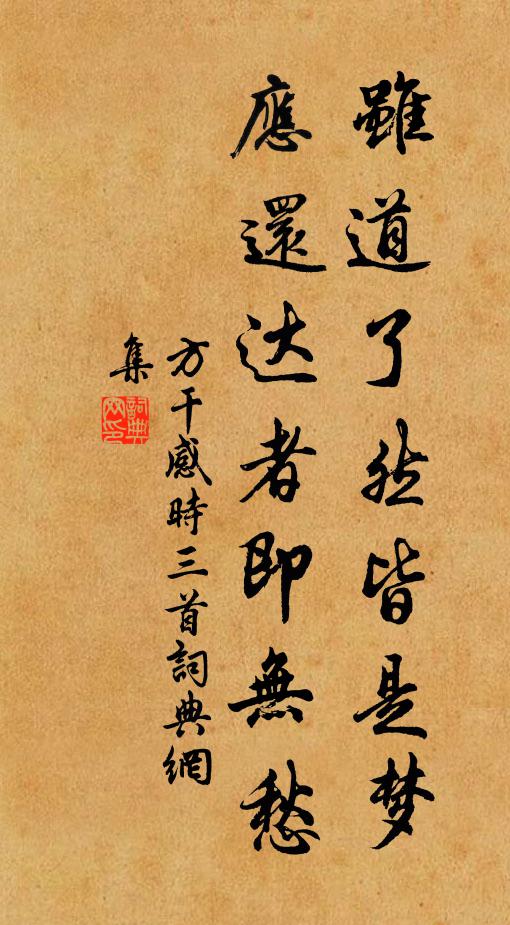 雖道了然皆是梦
應還达者即無愁
方干感時三首詞典網
集
詞典
网印